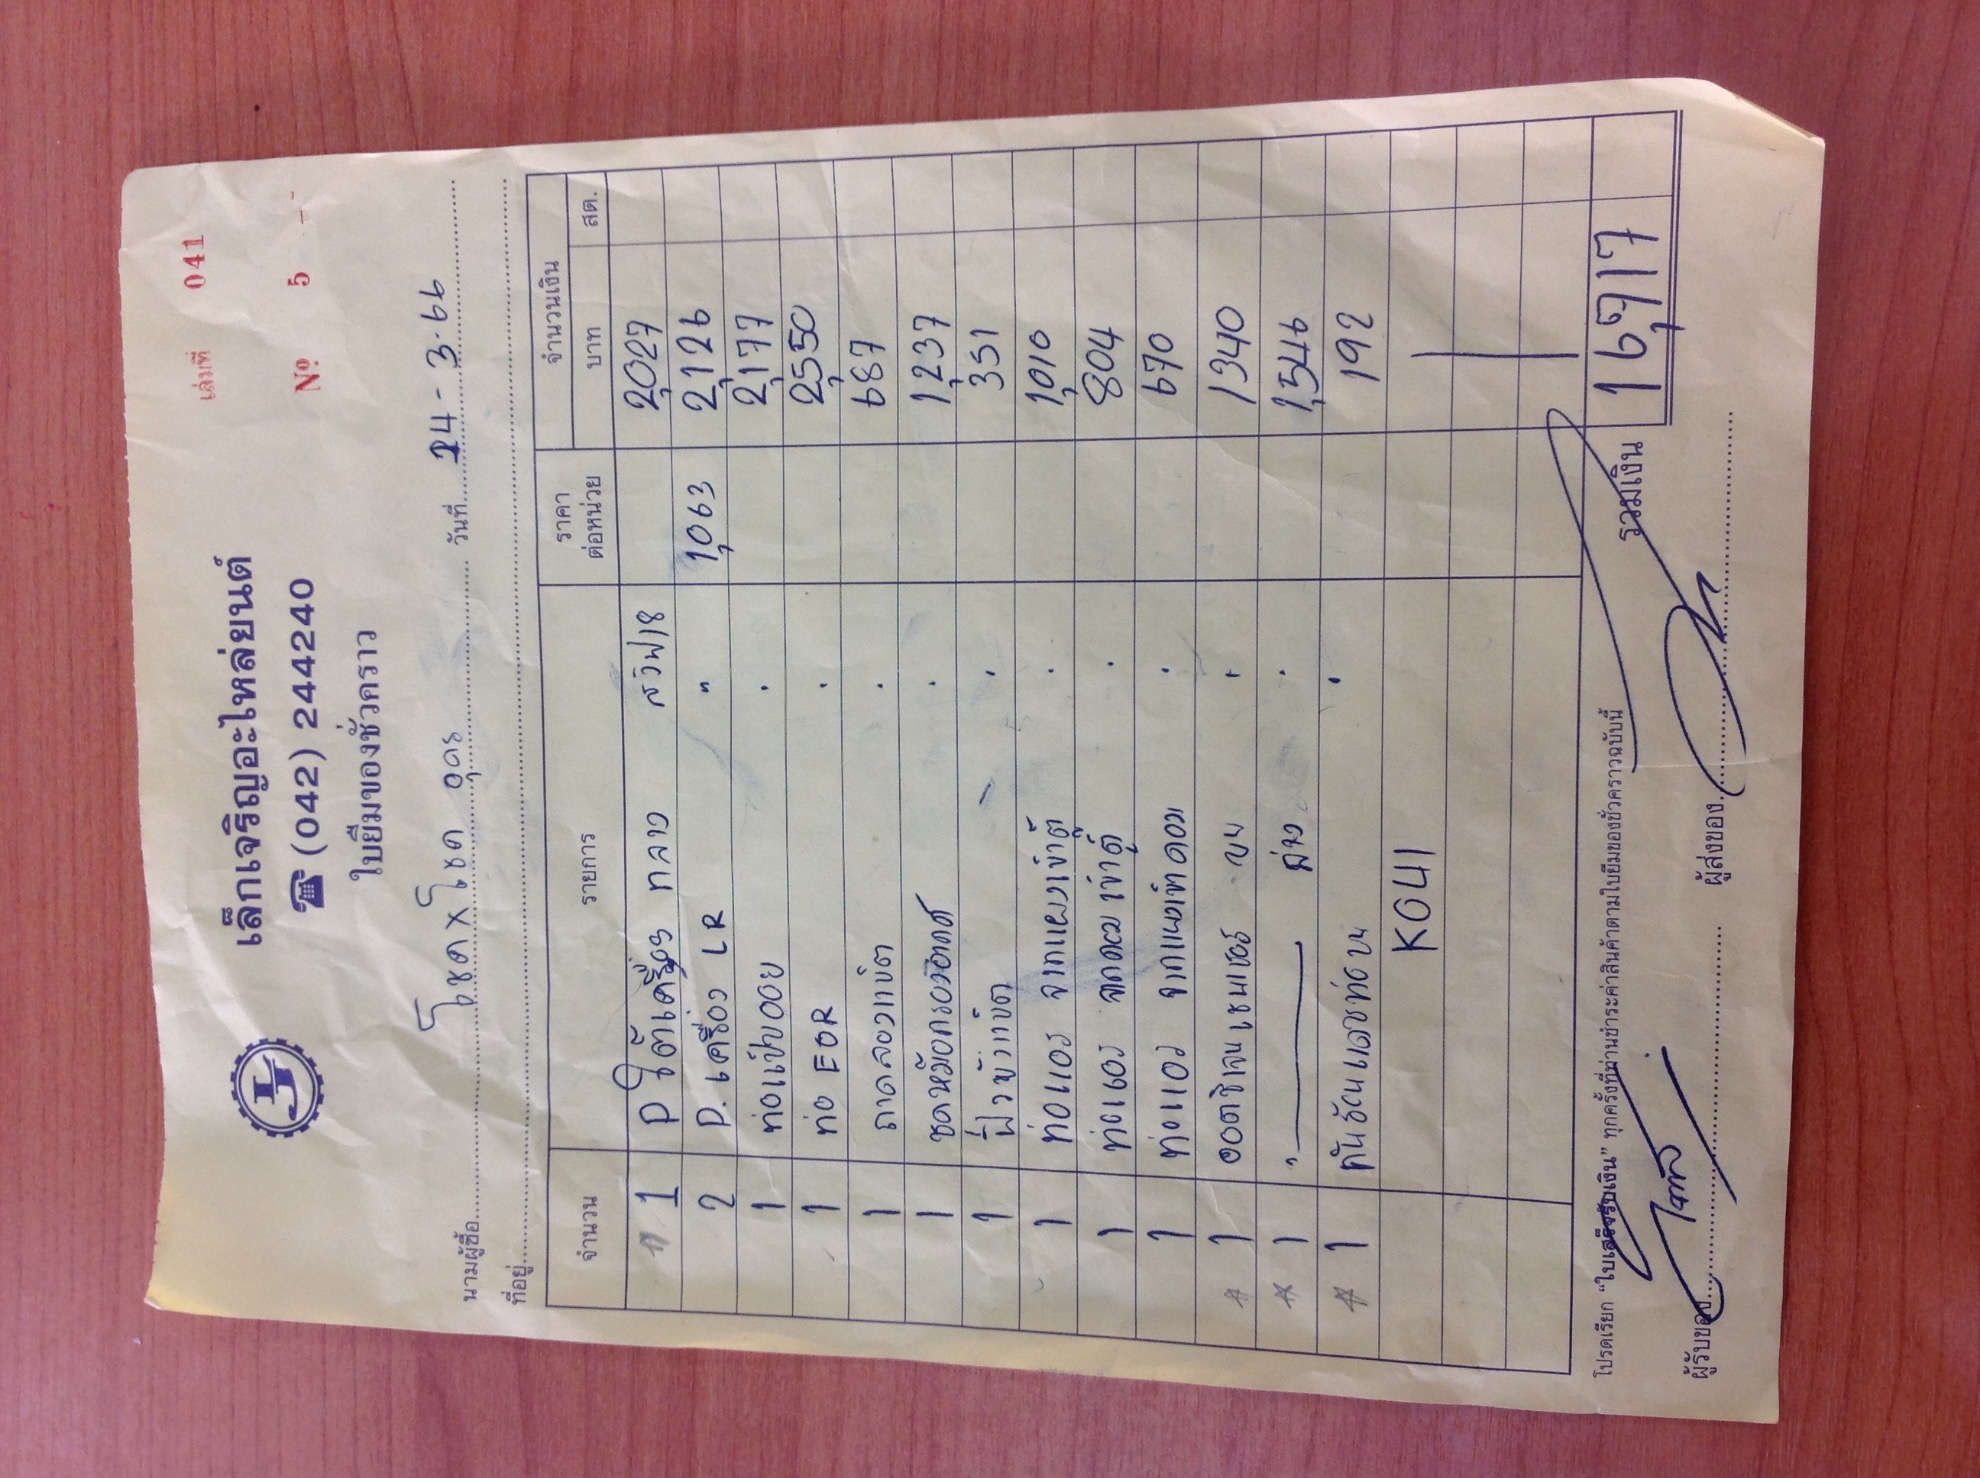 เล่มที่ 041
เล็กเจริญอะไหล่ยนต์
☎ (042) 244240
№ 5
ใบยืมของชั่วคราว
นามผู้ซื้อ โชค x โชค อุดร วันที่ 24-3-66
ที่อยู่
จำนวน รายการ ราคาต่อหน่วย จำนวนเงิน
บาท สต.
1 P ใต้เครื่อง กลาง สวิฟ18 2,027
2 P. เครื่อง LR " 1,063 2,126
1 ท่อแป๊บ 2,177
1 ท่อ EGR 2,550
1 687
1 ชุดหม้อกรองอากาศ 1,237
1 351
1 ท่อแอร์ จากแผงเข้าตู้ 1,010
1 ท่อแอร์ จากคอมเข้าตู้ 804
1 ท่อแอร์ จากแผงเข้าคอม 670
1 ออกซิเจนเซนเซอร์ บน 1340
1 " ล่าง 1,546
1 กันร้อนแคชท่อ บน 192
K041
โปรดเรียก "ใบเสร็จรับเงิน" ทุกครั้งที่ท่านชำระค่าสินค้าตามใบยืมของชั่วคราวฉบับนี้
รวมเงิน 16,717
ผู้รับของ ผู้ส่งของ